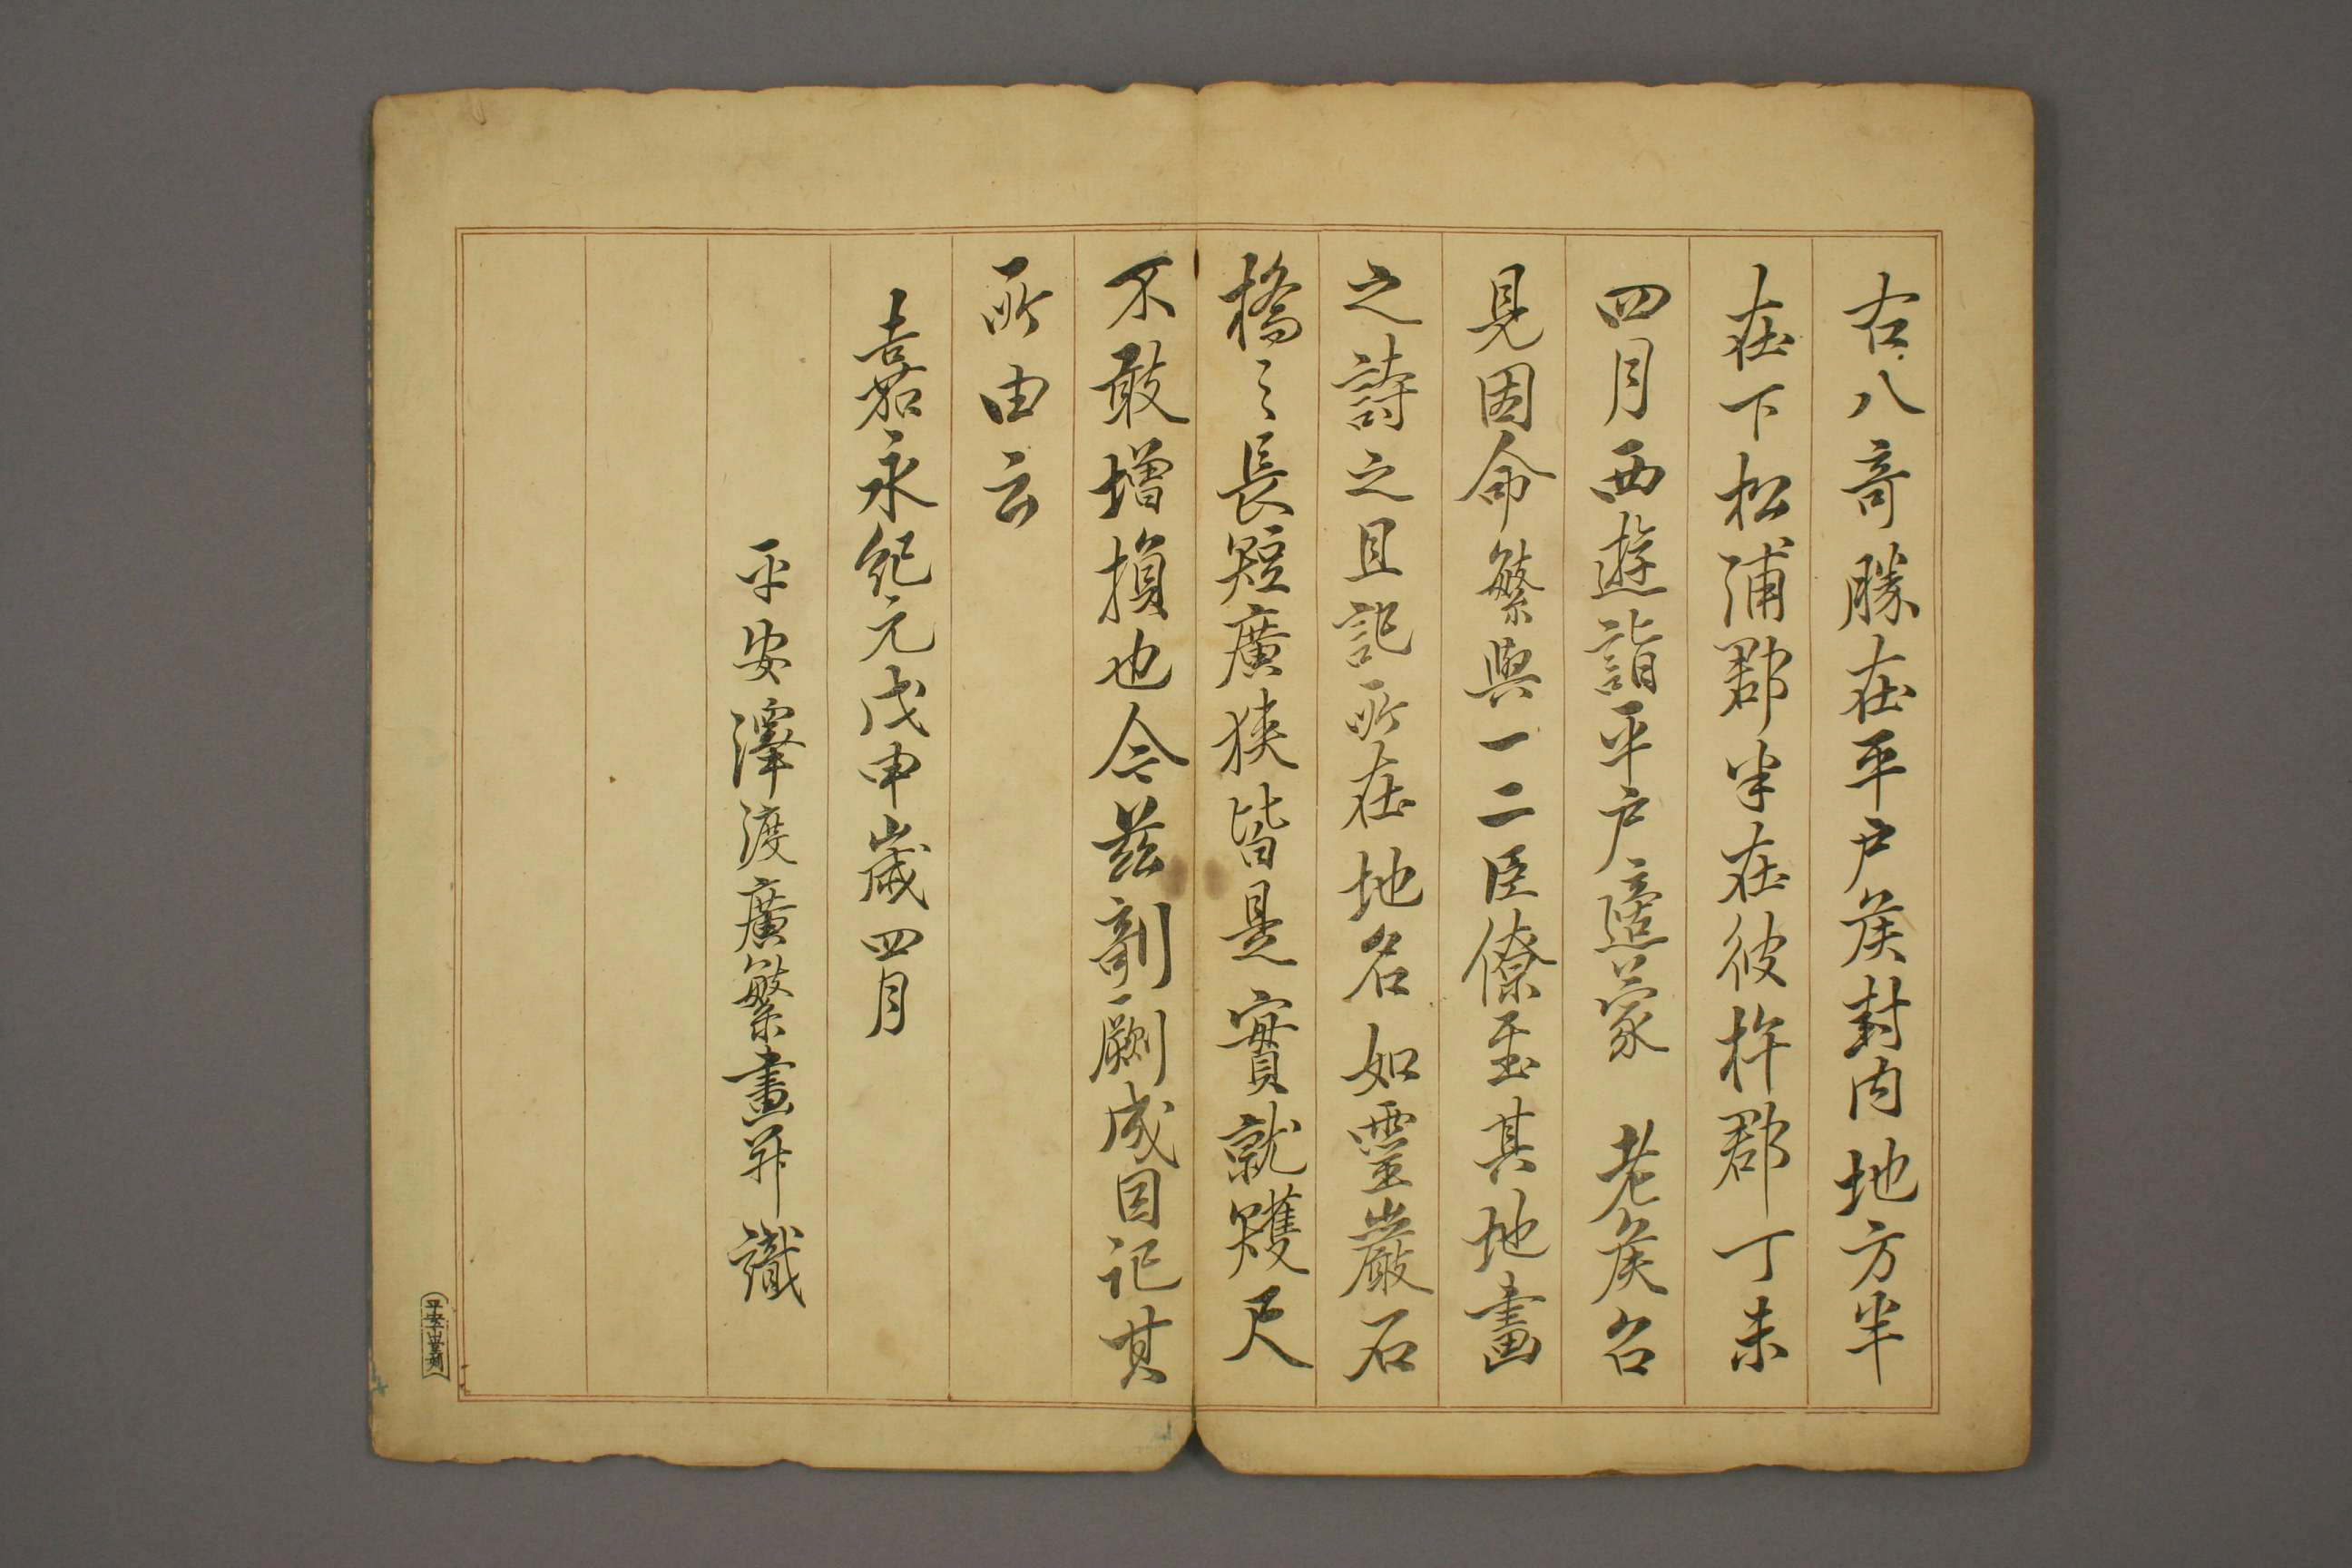 右八竒勝在平戶矦封内地方半
在下松浦郡半在彼杵郡丁未
四月西遊詣平戶適蒙　老矦召
見因命繁與一二臣僚至其地畫
之詩之且記所在地名如靈巖石
橋之長短廣狹皆是實就矱尺
不敢增損也今茲剞劂成因記其
所由云
嘉永紀元戊申歲四月
平安澤渡廣繁畫并識